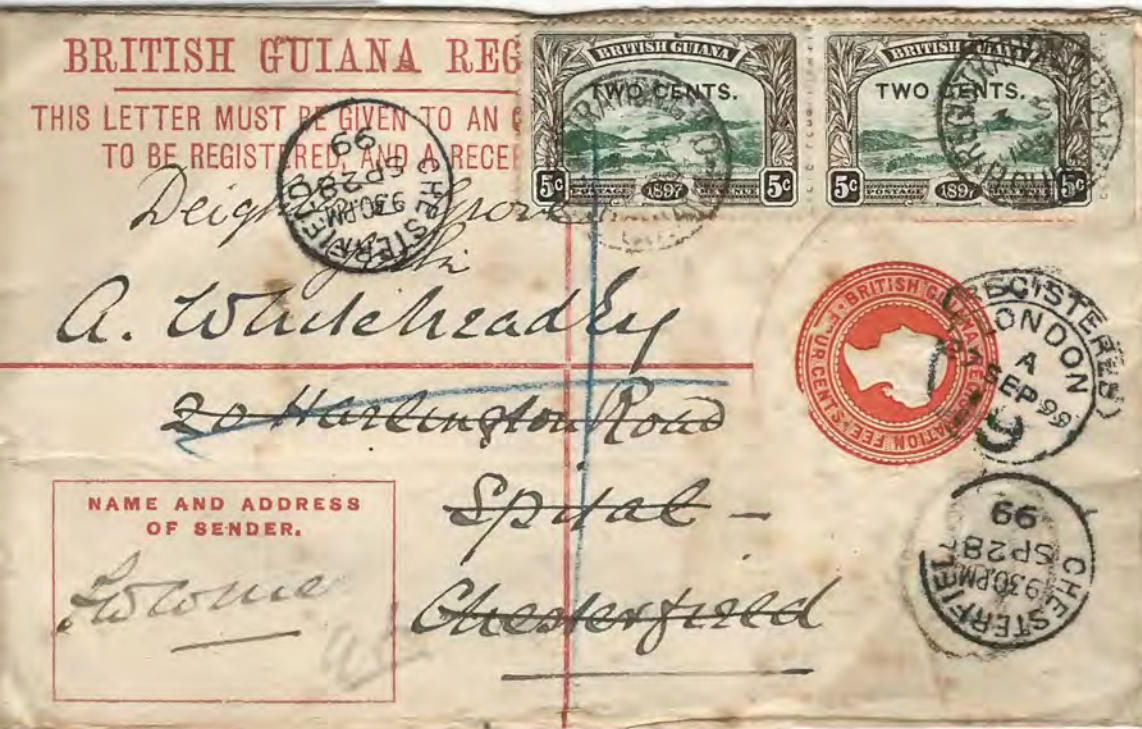 BRITISH GUIANA REG
THIS LETTER MUST BE GIVEN TO AN
TO BE REGISTERED, AND A RECE
BRITISH GUIANA
TWO CENTS.
5c POSTAGE 1897 REVENUE 5c
BRITISH GUIANA
TWO CENTS.
5c POSTAGE 1897 REVENUE 5c
CHESTERFIELD
9.30.PM
SP 28
99
A. Whitehead Esq
20 Harlington Road
Spital -
Chesterfield
BRITISH GUIANA REGISTRATION FEE FOUR CENTS
REGISTERED
LONDON
A
SEP 99
CHESTERFIELD
9.30.PM
SP 28
99
NAME AND ADDRESS
OF SENDER.